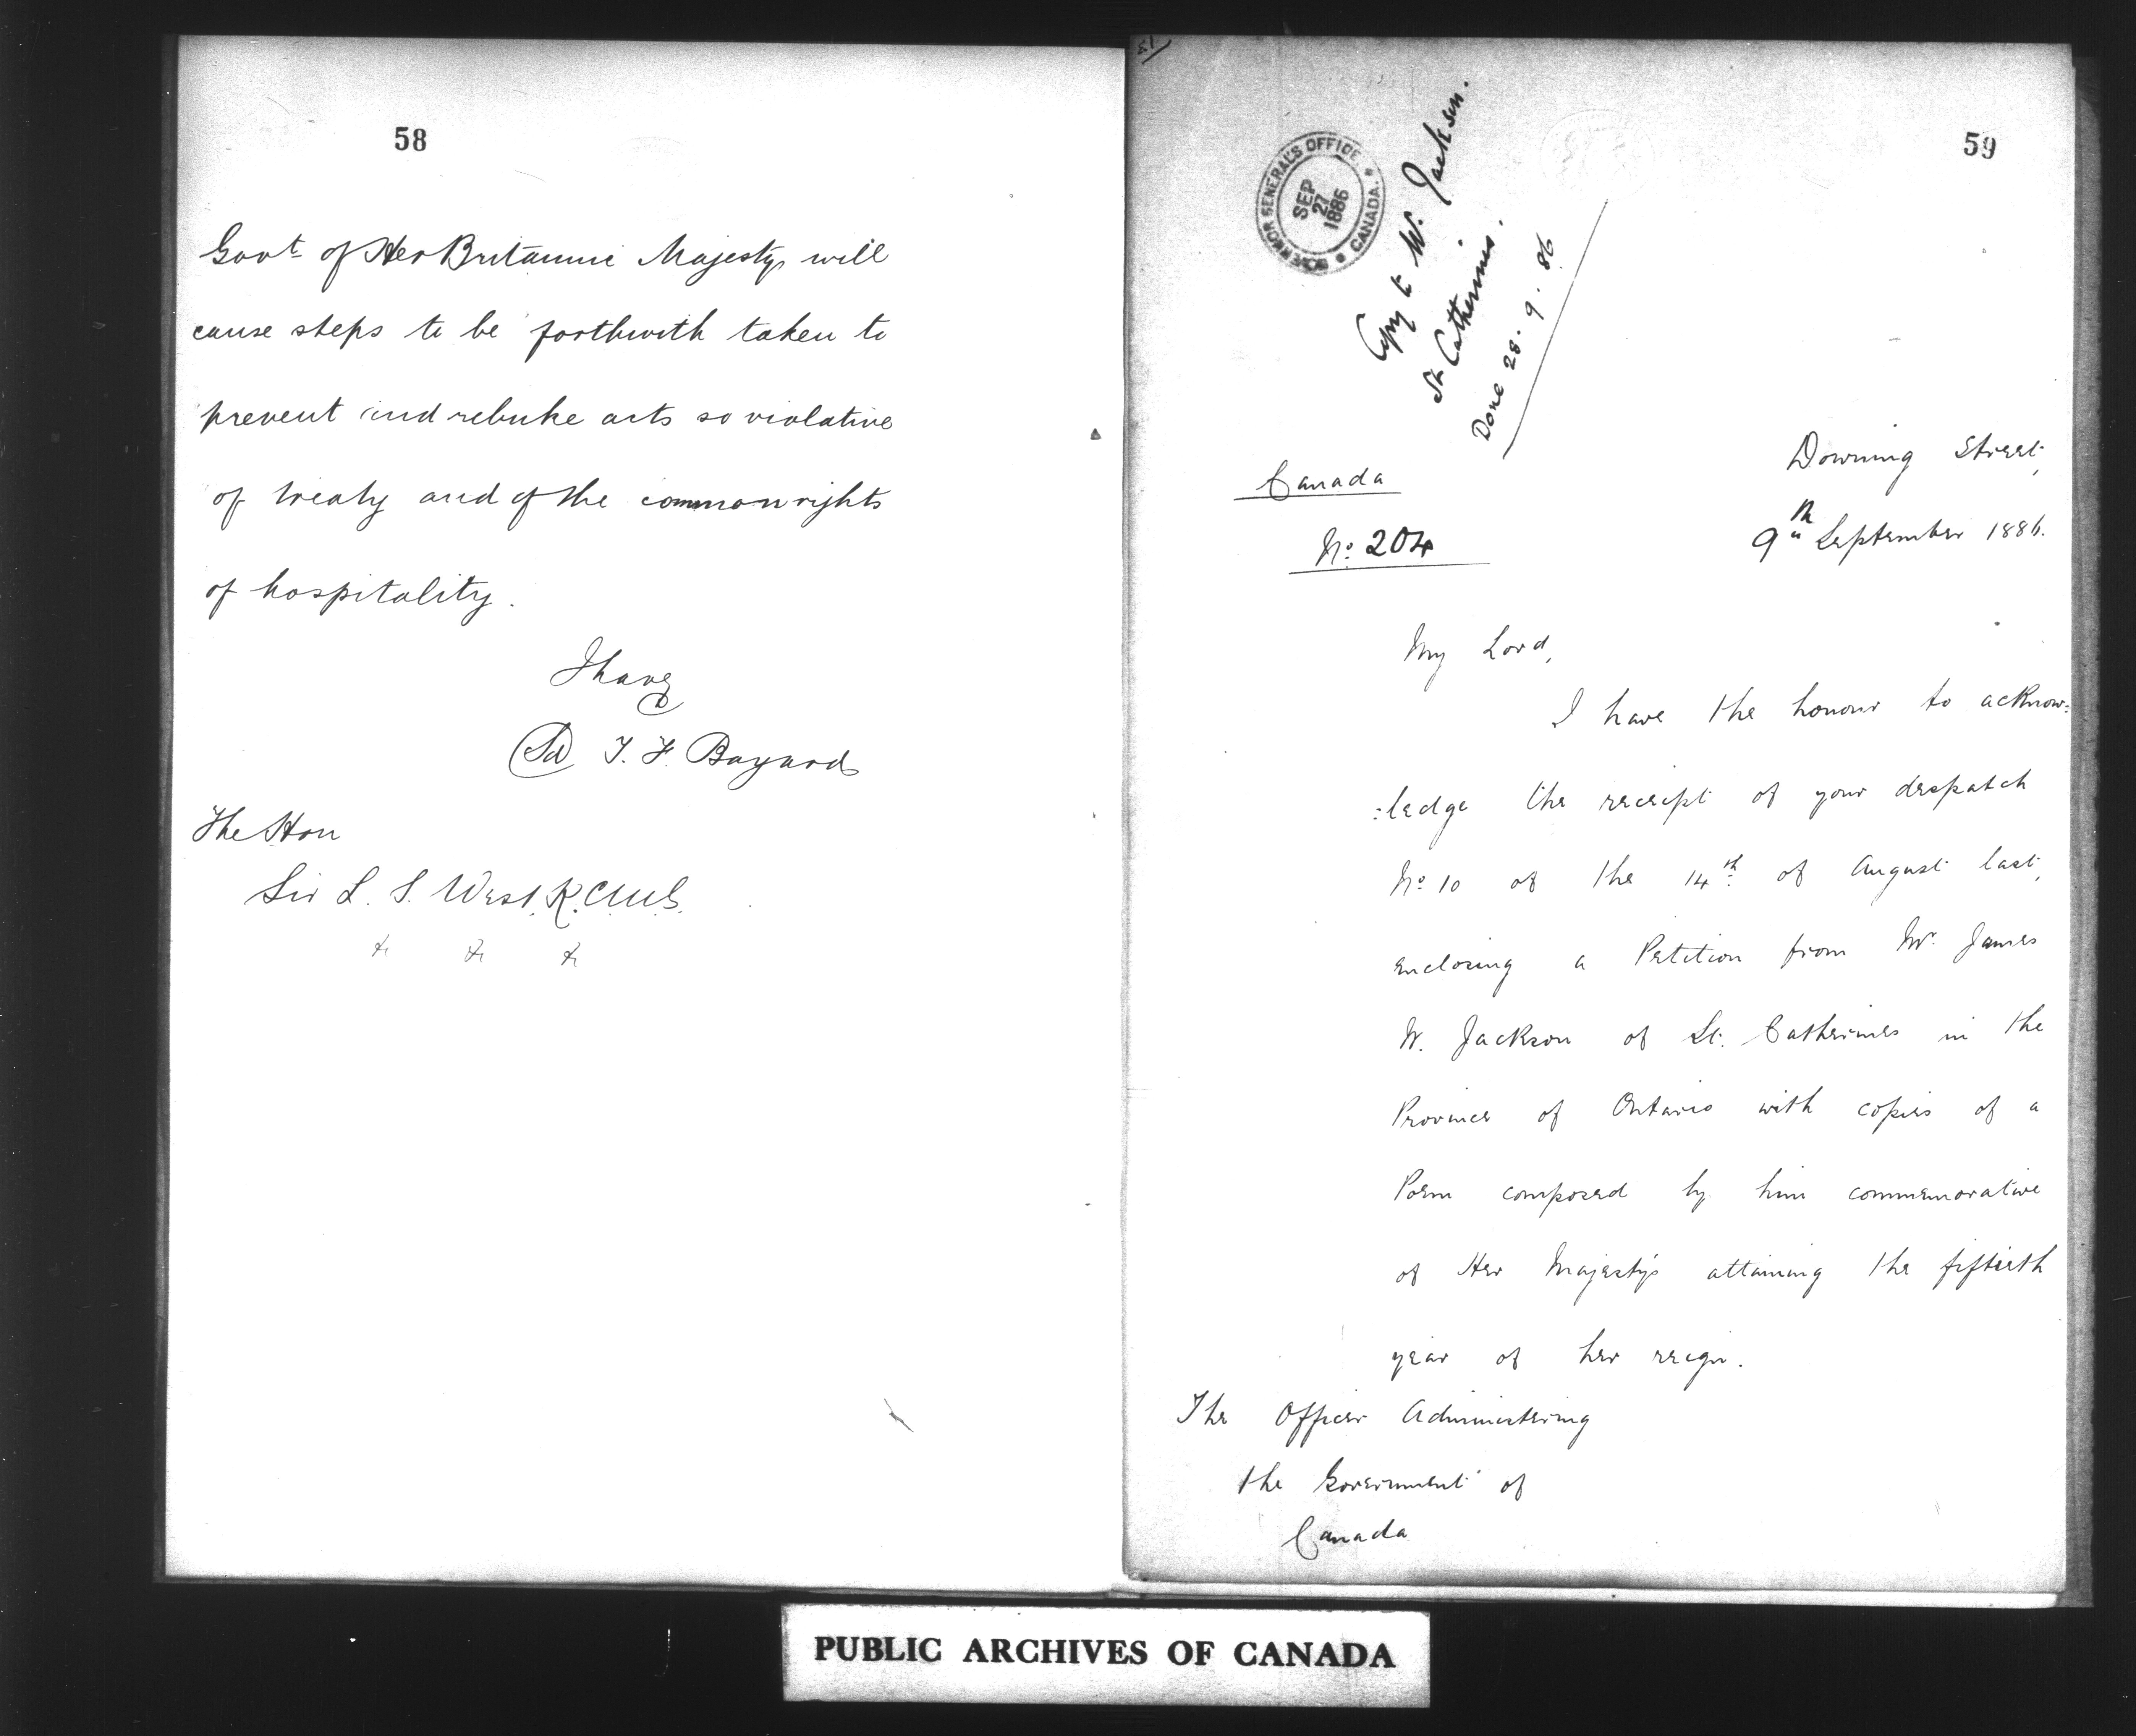 58
Govt of Her Britannic Majesty will
cause steps to be forthwith taken to
prevent and rebuke acts so violative
of treaty and of the common rights
of hospitality.
I have
(Sd) T. F. Bayard
The Hon
Sir L. S. West. K.C.M.G.
&c &c &c
51
59
GOVERNOR GENERAL'S OFFICE
CANADA.
SEP
27
1886
Copy to W. Jackson.
St Catherines.
Done 28. 9. 86
Canada
No. 204
Downing Street,
9th September 1886.
My Lord,
I have the honour to acknow:
:ledge the receipt of your despatch
No. 10 of the 14th of August last,
enclosing a Petition from Mr. James
W. Jackson of St. Catherines in the
Province of Ontario with copies of a
Poem composed by him commemorative
of Her Majesty's attaining the fiftieth
year of her reign.
The Officer Administering
the Government of
Canada
PUBLIC ARCHIVES OF CANADA